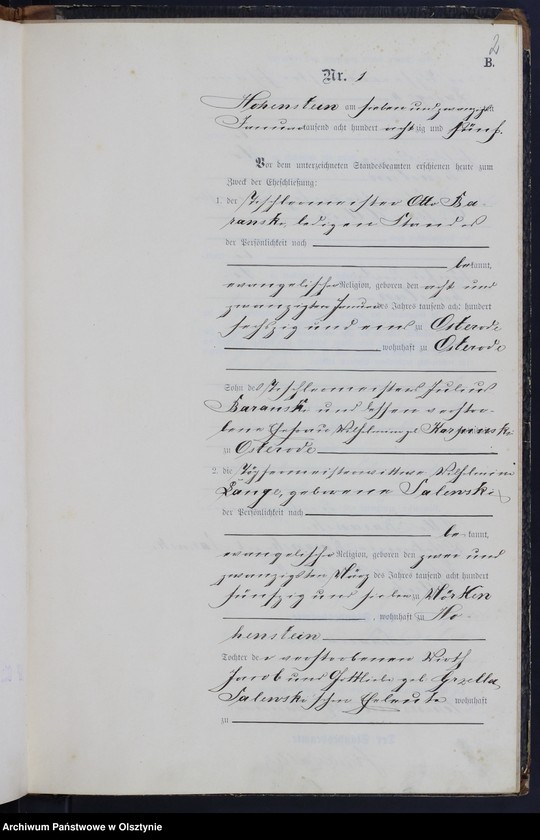 2
B.
Nr. 1
Hohenstein am sieben und zwanzigsten
Januar tausend acht hundert achtzig und fünf.
Vor dem unterzeichneten Standesbeamten erschienen heute zum
Zweck der Eheschließung:
1. der Tischlermeister Otto Ba-
ranski, ledigen Standes
der Persönlichkeit nach
bekannt,
evangelischer Religion, geboren den acht und
zwanzigsten Januar des Jahres tausend acht hundert
sechszig und eins zu Osterode
wohnhaft zu Osterode
Sohn des Tischlermeisters Julius
Baranski und dessen verstor-
bene Ehefrau Wilhelmine geb. Karpinski
zu Osterode
2. die Töpfermeisterwittwe Wilhelmine
Lange, geborene Salewski,
der Persönlichkeit nach
bekannt,
evangelischer Religion, geboren den zwei und
zwanzigsten März des Jahres tausend acht hundert
fünfzig und sieben zu Mörken
, wohnhaft zu Ho-
henstein
Tochter der verstorbenen Wirth
Jacob und Gottliebe geb. Grzella,
Salewski'schen Eheleute wohnhaft
zu
Archiwum Państwowe w Olsztynie